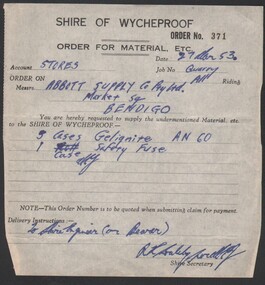 SHIRE OF WYCHEPROOF
ORDER No. 371
ORDER FOR MATERIAL, ETC.
Date 27 Mar 53
Account STORES Job No Quarry
ORDER ON All Riding
Messrs. ABBOTT SUPPLY Co Pty Ltd.
Market Sq
BENDIGO
You are hereby requested to supply the undermentioned Material, etc.
to the SHIRE OF WYCHEPROOF—
Cases Gelignite AN 60
1 Case Safety Fuse
NOTE—This Order Number is to be quoted when submitting claim for payment.
Delivery Instructions—
To Shire Engineer (on Bearer)
Shire Secretary